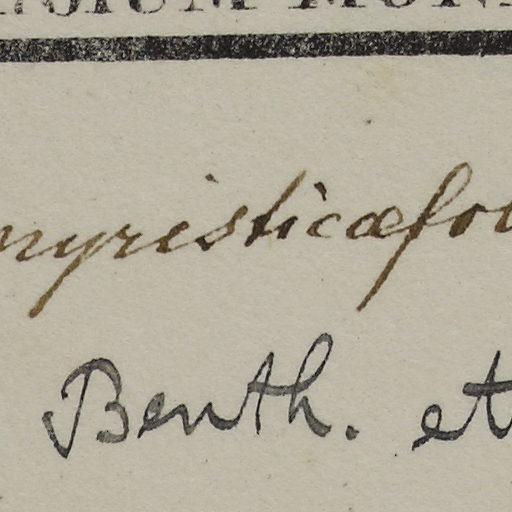 myristicæfo
Benth. et